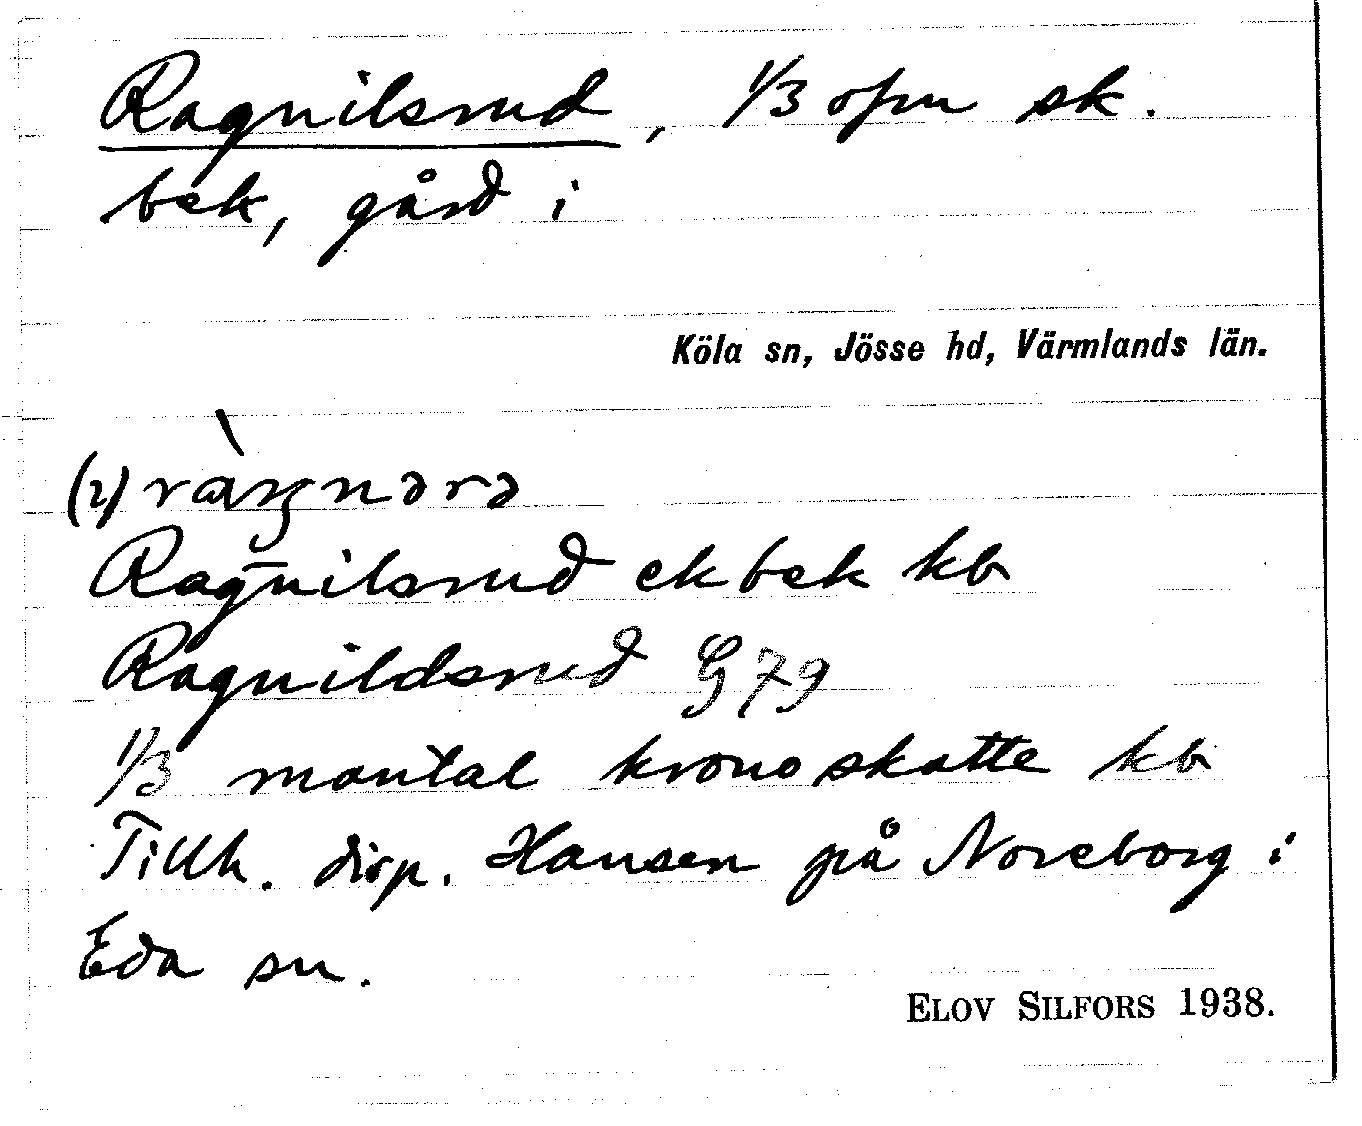 Ragnilsrud, 1/3 ofm sk.
bek, gård i
Köla sn, Jösse hd, Värmlands län.
(2)
Ragnilsrud ekbek kb
Ragnildsrud G 79
1/3 mantal kronoskatte kb
Tillh. disp. Hansen på Noreborg i
Eda sn.
ELOV SILFORS 1938.